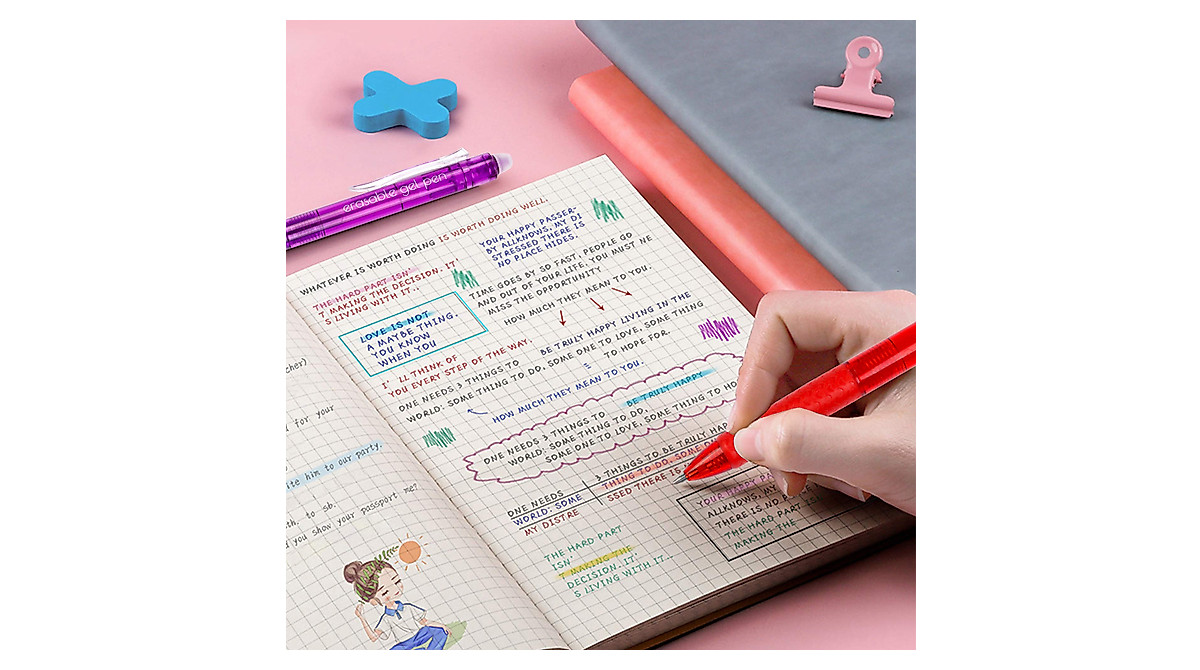 erasable gel pen
WHATEVER IS WORTH DOING IS WORTH DOING WELL.
THE HARD PART ISN'
T MAKING THE DECISION. IT'
S LIVING WITH IT..
YOUR HAPPY PASSER-
BY ALLKNOWS, MY DI
STRESSED THERE IS
NO PLACE HIDES.
TIME GOES BY SO FAST, PEOPLE GO
AND OUT OF YOUR LIFE, YOU MUST NE
MISS THE OPPORTUNITY
HOW MUCH THEY MEAN TO YOU.
LOVE IS NOT
A MAYBE THING,
YOU KNOW
WHEN YOU
I' LL THINK OF
YOU EVERY STEP OF THE WAY.
BE TRULY HAPPY LIVING IN THE
ONE NEEDS 3 THINGS TO
WORLD: SOME THING TO DO, SOME ONE TO LOVE, SOME THING
TO HOPE FOR.
HOW MUCH THEY MEAN TO YOU.
BE TRULY HAPPY
ONE NEEDS 3 THINGS TO
WORLD: SOME THING TO DO,
SOME ONE TO LOVE, SOME THING TO HO
3 THINGS TO BE TRULY HAP
THING TO DO, SOME ON
SSED THERE IS
ONE NEEDS
WORLD: SOME
MY DISTRE
YOUR HAPPY PA
ALLKNOWS, MY
THERE IS NO
THE HARD PART IS
MAKING THE
THE HARD PART
ISN'
T MAKING THE
DECISION. IT'
S LIVING WITH IT..
cher)
for your
ite him to our party.
th. to sb.
d you show your passport me?